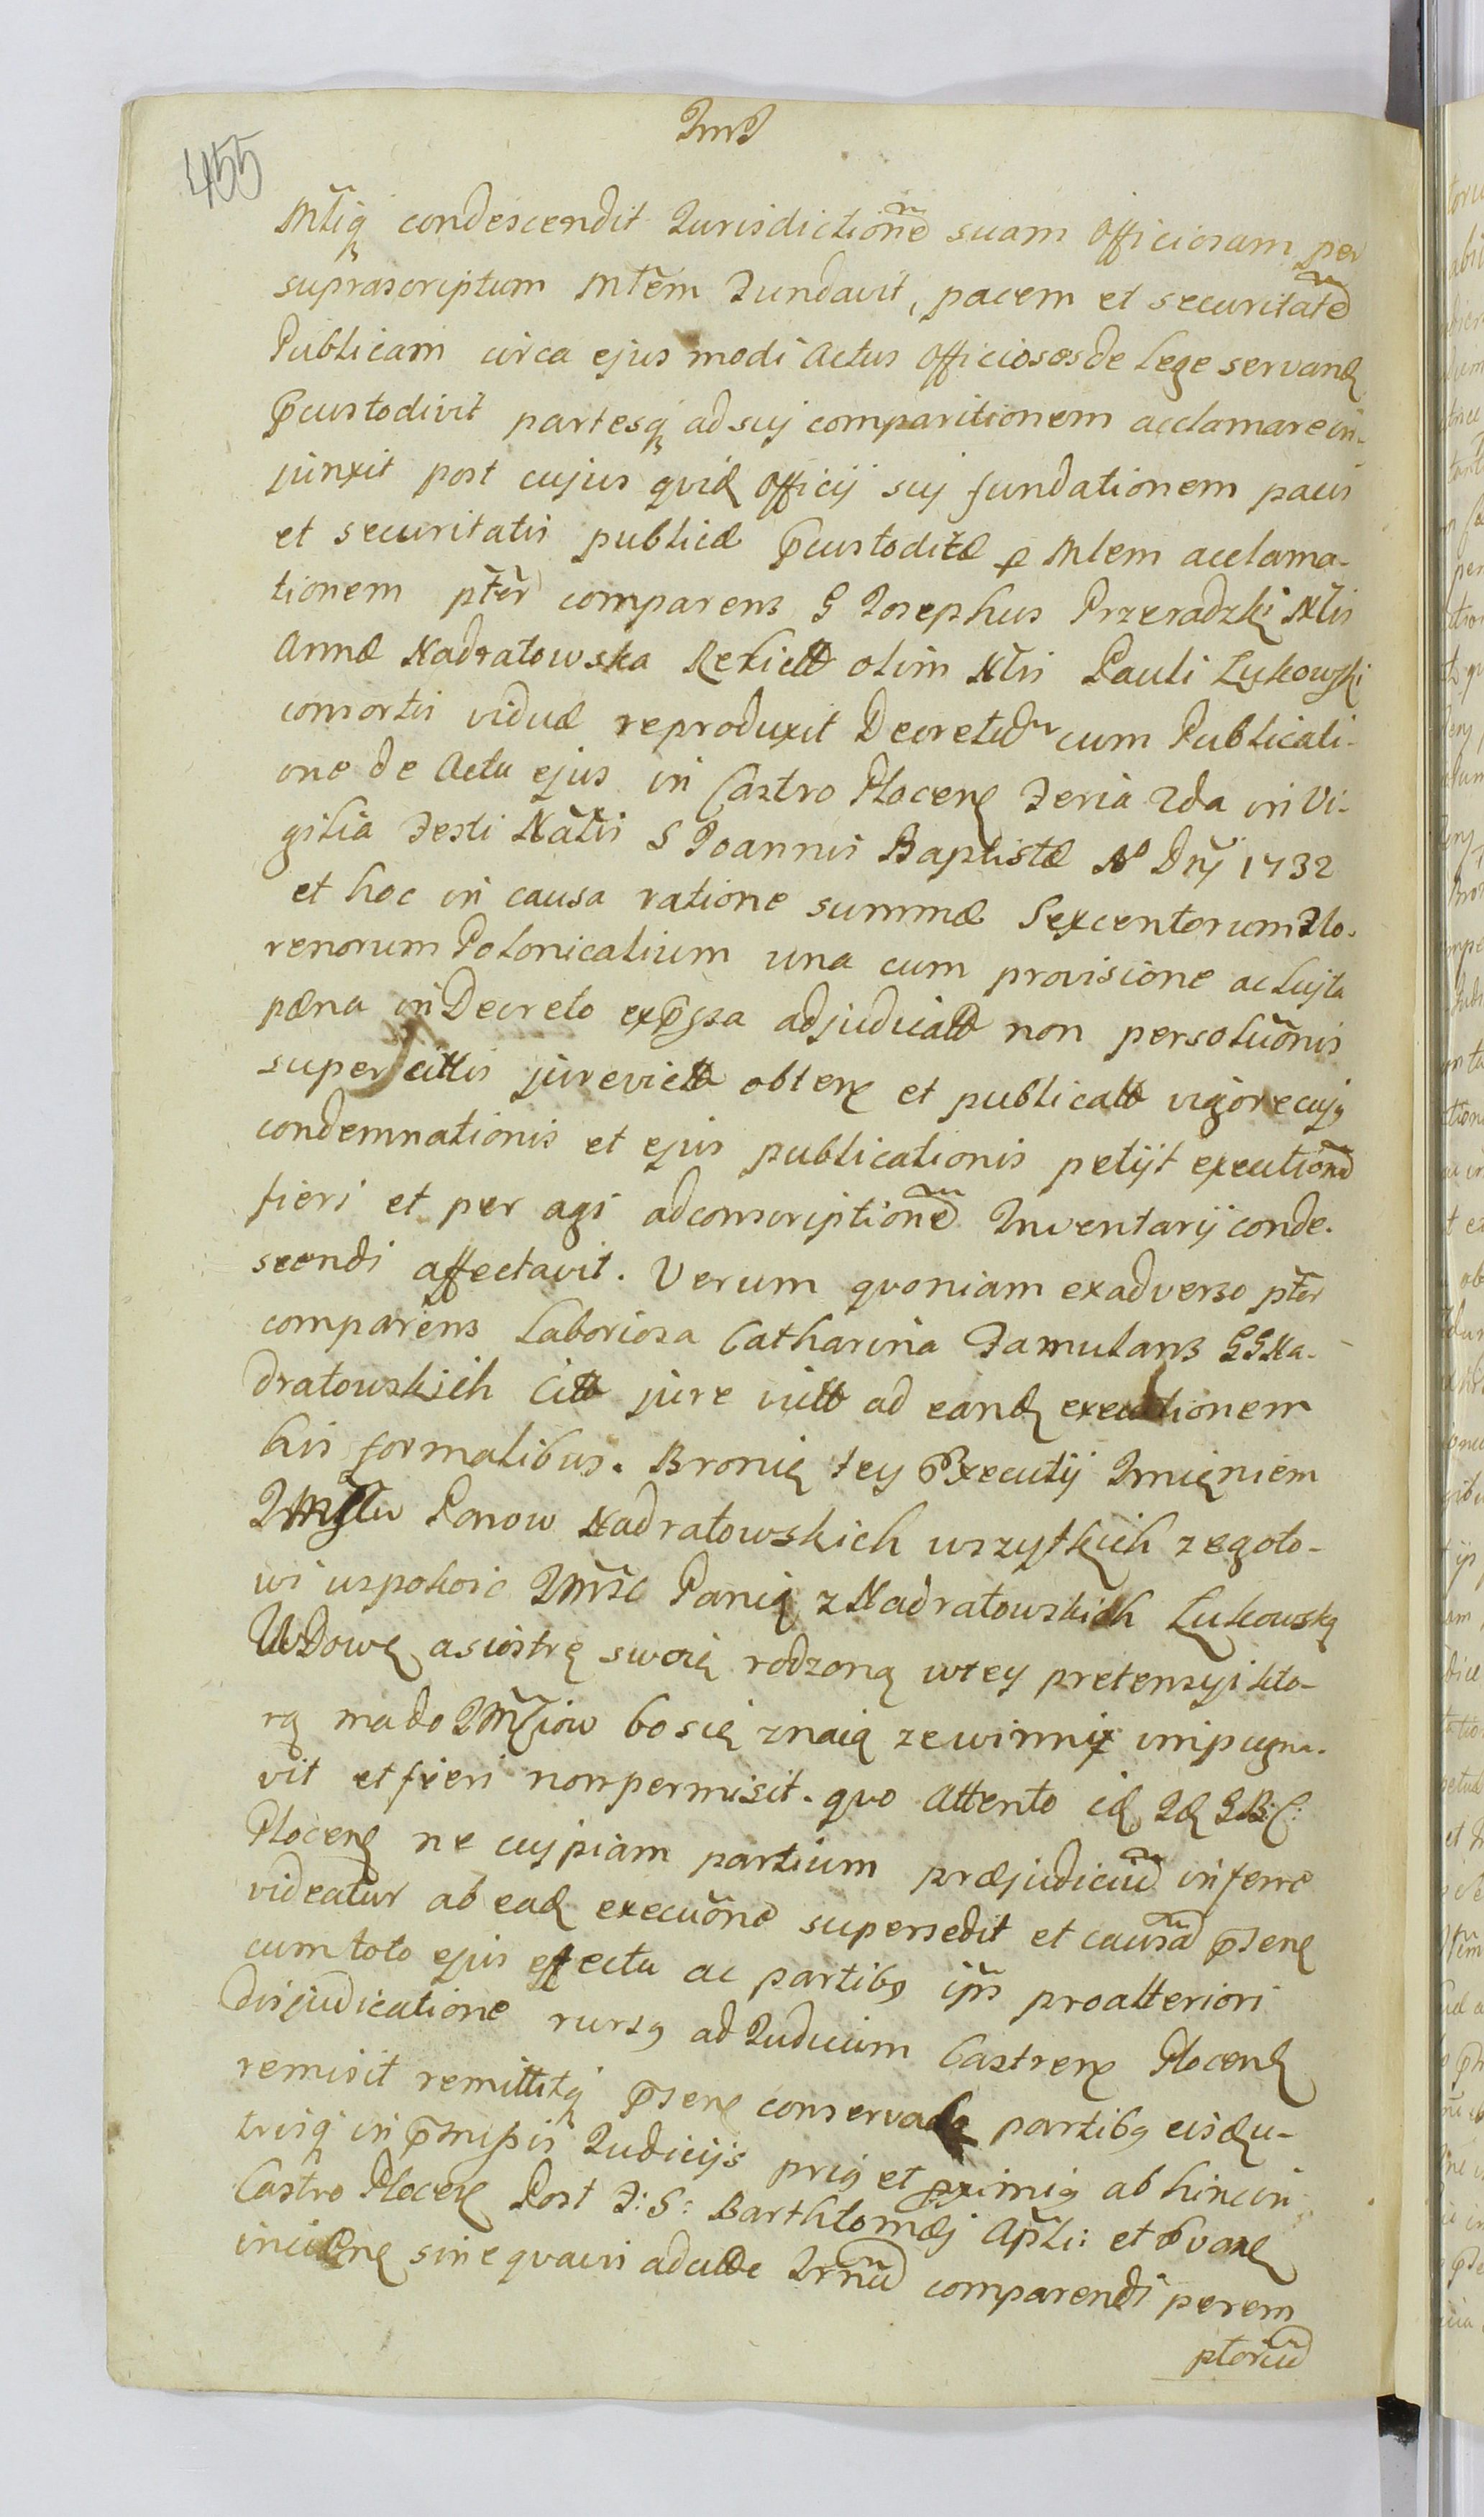 455
Mtiq condescendit Jurisdictione suam Officiosam per
suprascriptum Mtem Fundavit, pacem et securitate
Publicam circa ejus modi Actus Officiosos de Lege servand
Pcustodivit partesq ad suj comparitionem acclamare in-
junxit post cujus quid Officij suj fundationem pacis
et securitatis publicæ Pcustoditæ p Mtem acclama-
tionem pter comparens G Josephus Przeradzki Ntis
Annæ Nadratowska Relictæ olim Ntis Pauli Łukowski
consortis viduæ reproduxit Decretu cum Publicati-
one de Actu ejus in Castro Plocen Feria 2da in Vi-
gilia Festi Natis S Joannis Baptistæ Ao Dnj 1732
et hoc in causa ratione summæ Sexcentorum Flo-
renorum Polonicalium una cum provisione ac Lujta
pæna in Decreto expssa adjudicatt non persoluonis
super cittis jurevictt obten et publicatt vigore cujq
condemnationis et ejus publicationis petijt executione
fieri et per agi ad conscriptione Inventarij conde-
scendi affectavit. Verum quoniam ex adverso pter
comparens Laboriosa Catharina Famulans GGNa-
dratowskich Citt jure victt ad eand executionem
his formalibus. Bronię tey Executij Imięniem
Panow Nadratowskich wszytkich ze goto-
wi uspokoic Jmsc Panią z Nadratowskich Łukowską
Wdowę a siostrę swoię rodzoną w tey pretensyi kto-
rą ma do bo się znaią ze winni impugna-
vit et fieri non permisit. quo Attento id Jd GB:C:
Plocen ne cujpiam partium præjudiciu inferre
videatur ab ead execuone supersedit et causa psen
cum toto ejus effectu ac partibq ijs pro alteriori
disjudicatione rursq ad Judicium Castren Plocen
remisit remittitq psen conservata partibq eisd u-
trisq in pmissis Judicijs priq et pximiq ab hinc in
Castro Plocen Post F: S: Barthlomæj Apli: et
inciden sine quavis ad citte Trnu comparendi perem
ptoriu